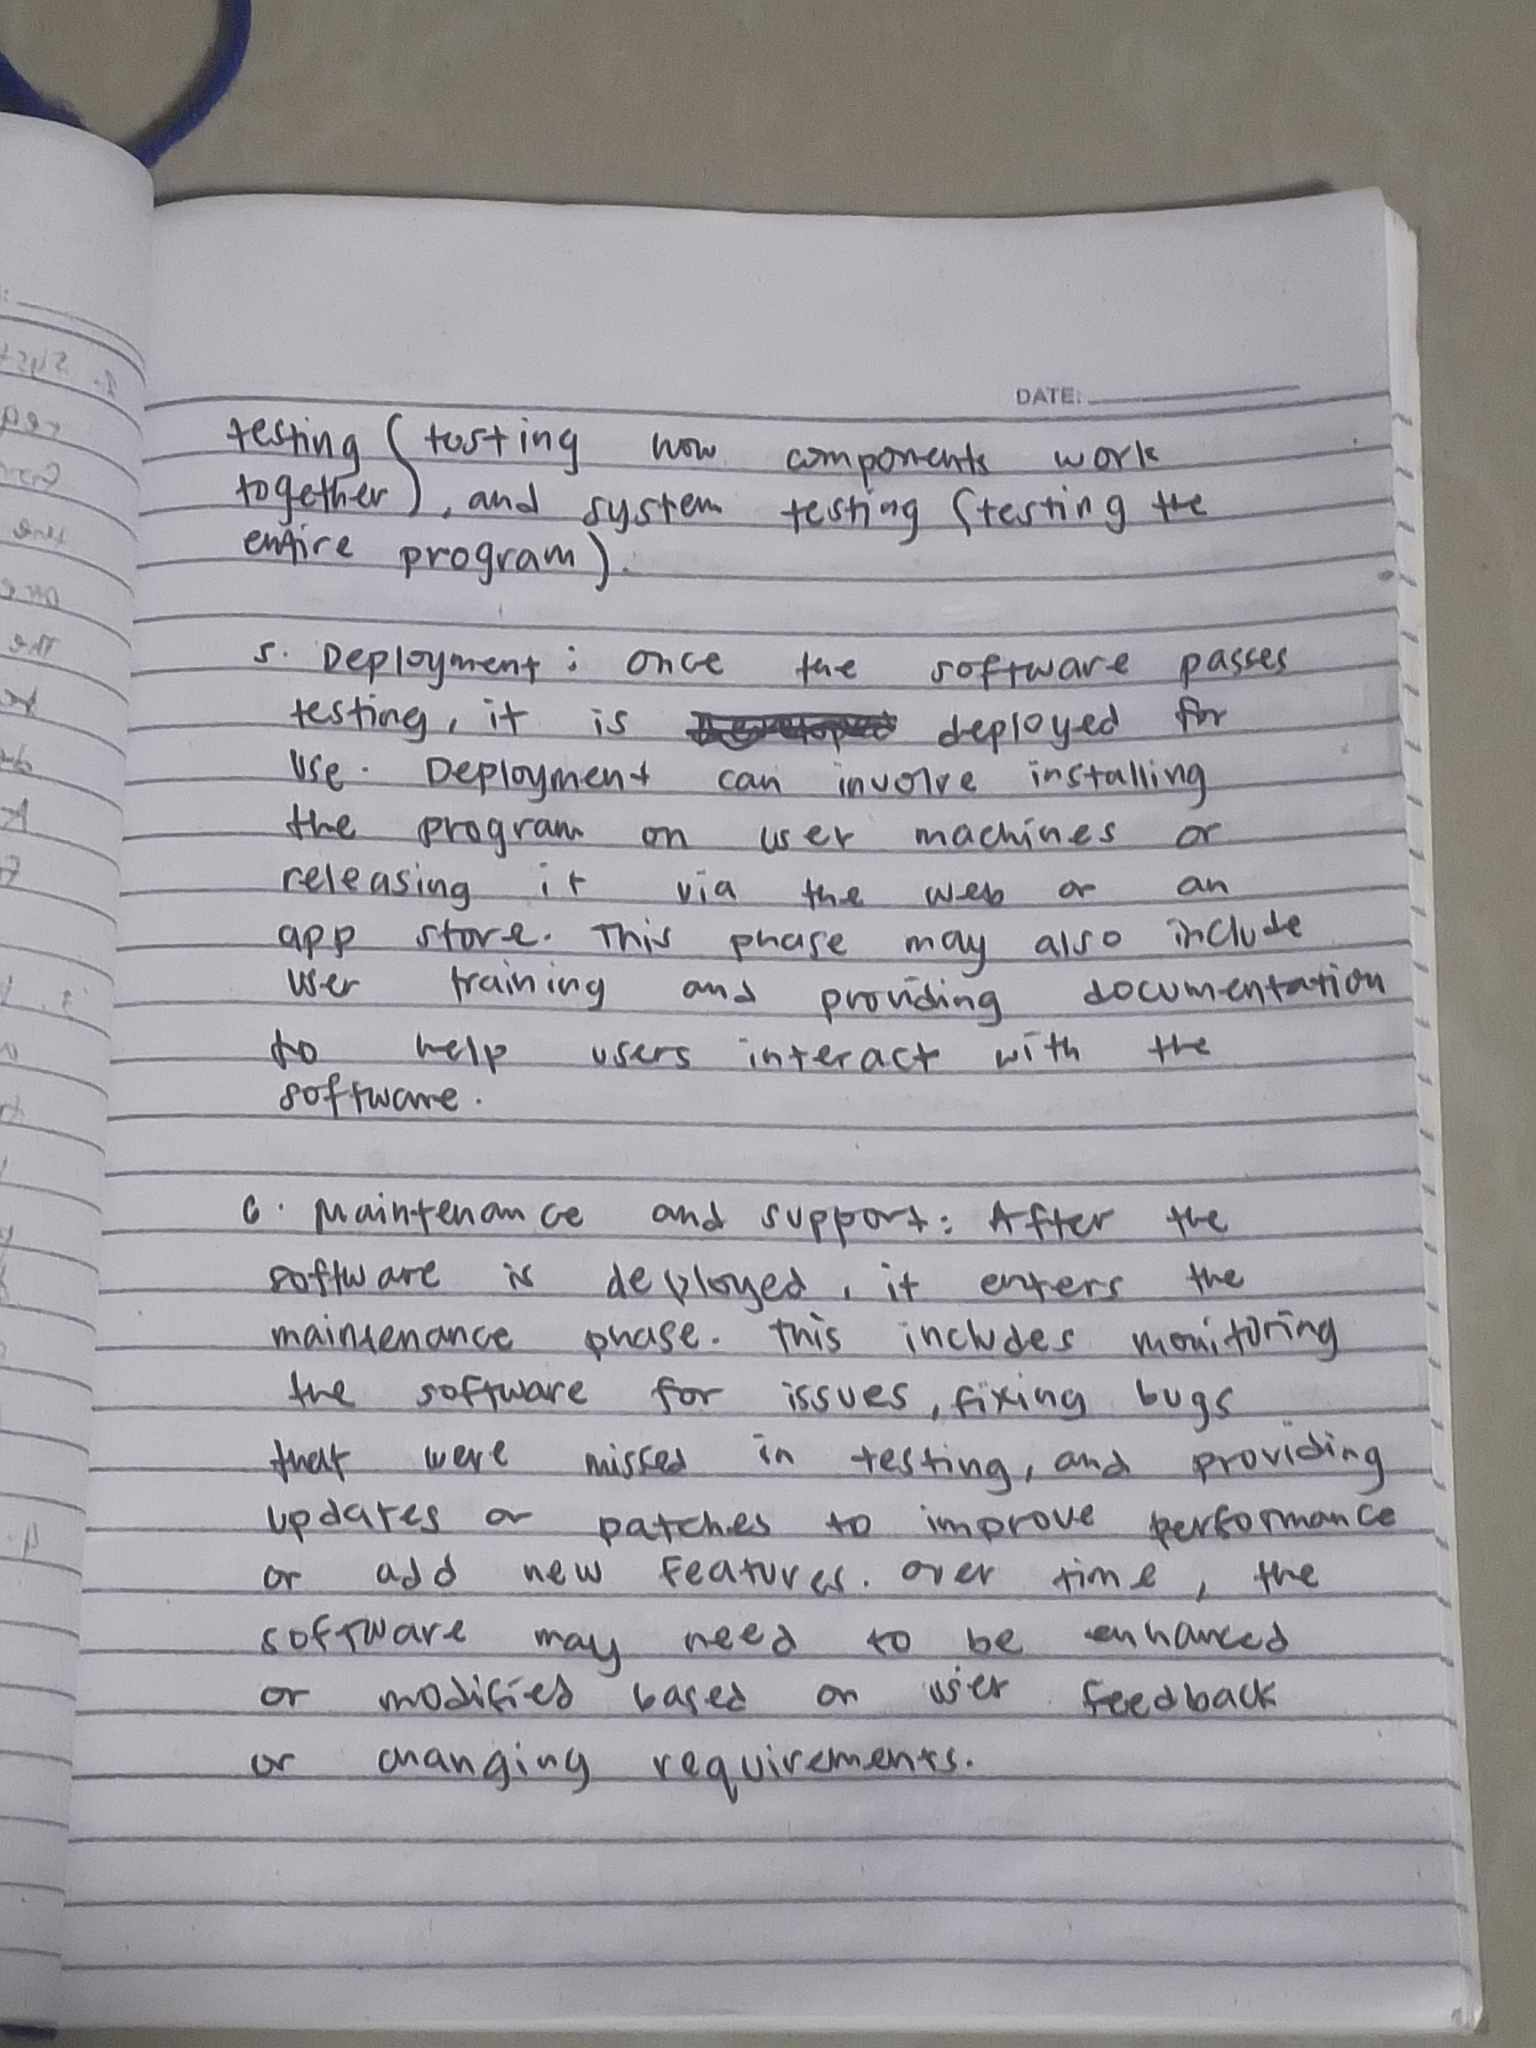 DATE:
testing (testing how components work
together), and system testing (testing the
entire program).
5. Deployment: once the software passes
testing, it is deployed for
use. Deployment can involve installing
the program on user machines or
releasing it via the web or an
app store. This phase may also include
user training and providing documentation
to help users interact with the
software.
6. Maintenance and support: After the
software is deployed, it enters the
maintenance phase. This includes monitoring
the software for issues, fixing bugs
that were missed in testing, and providing
updates or patches to improve performance
or add new features. over time, the
software may need to be enhanced
or modified based on user feedback
or changing requirements.